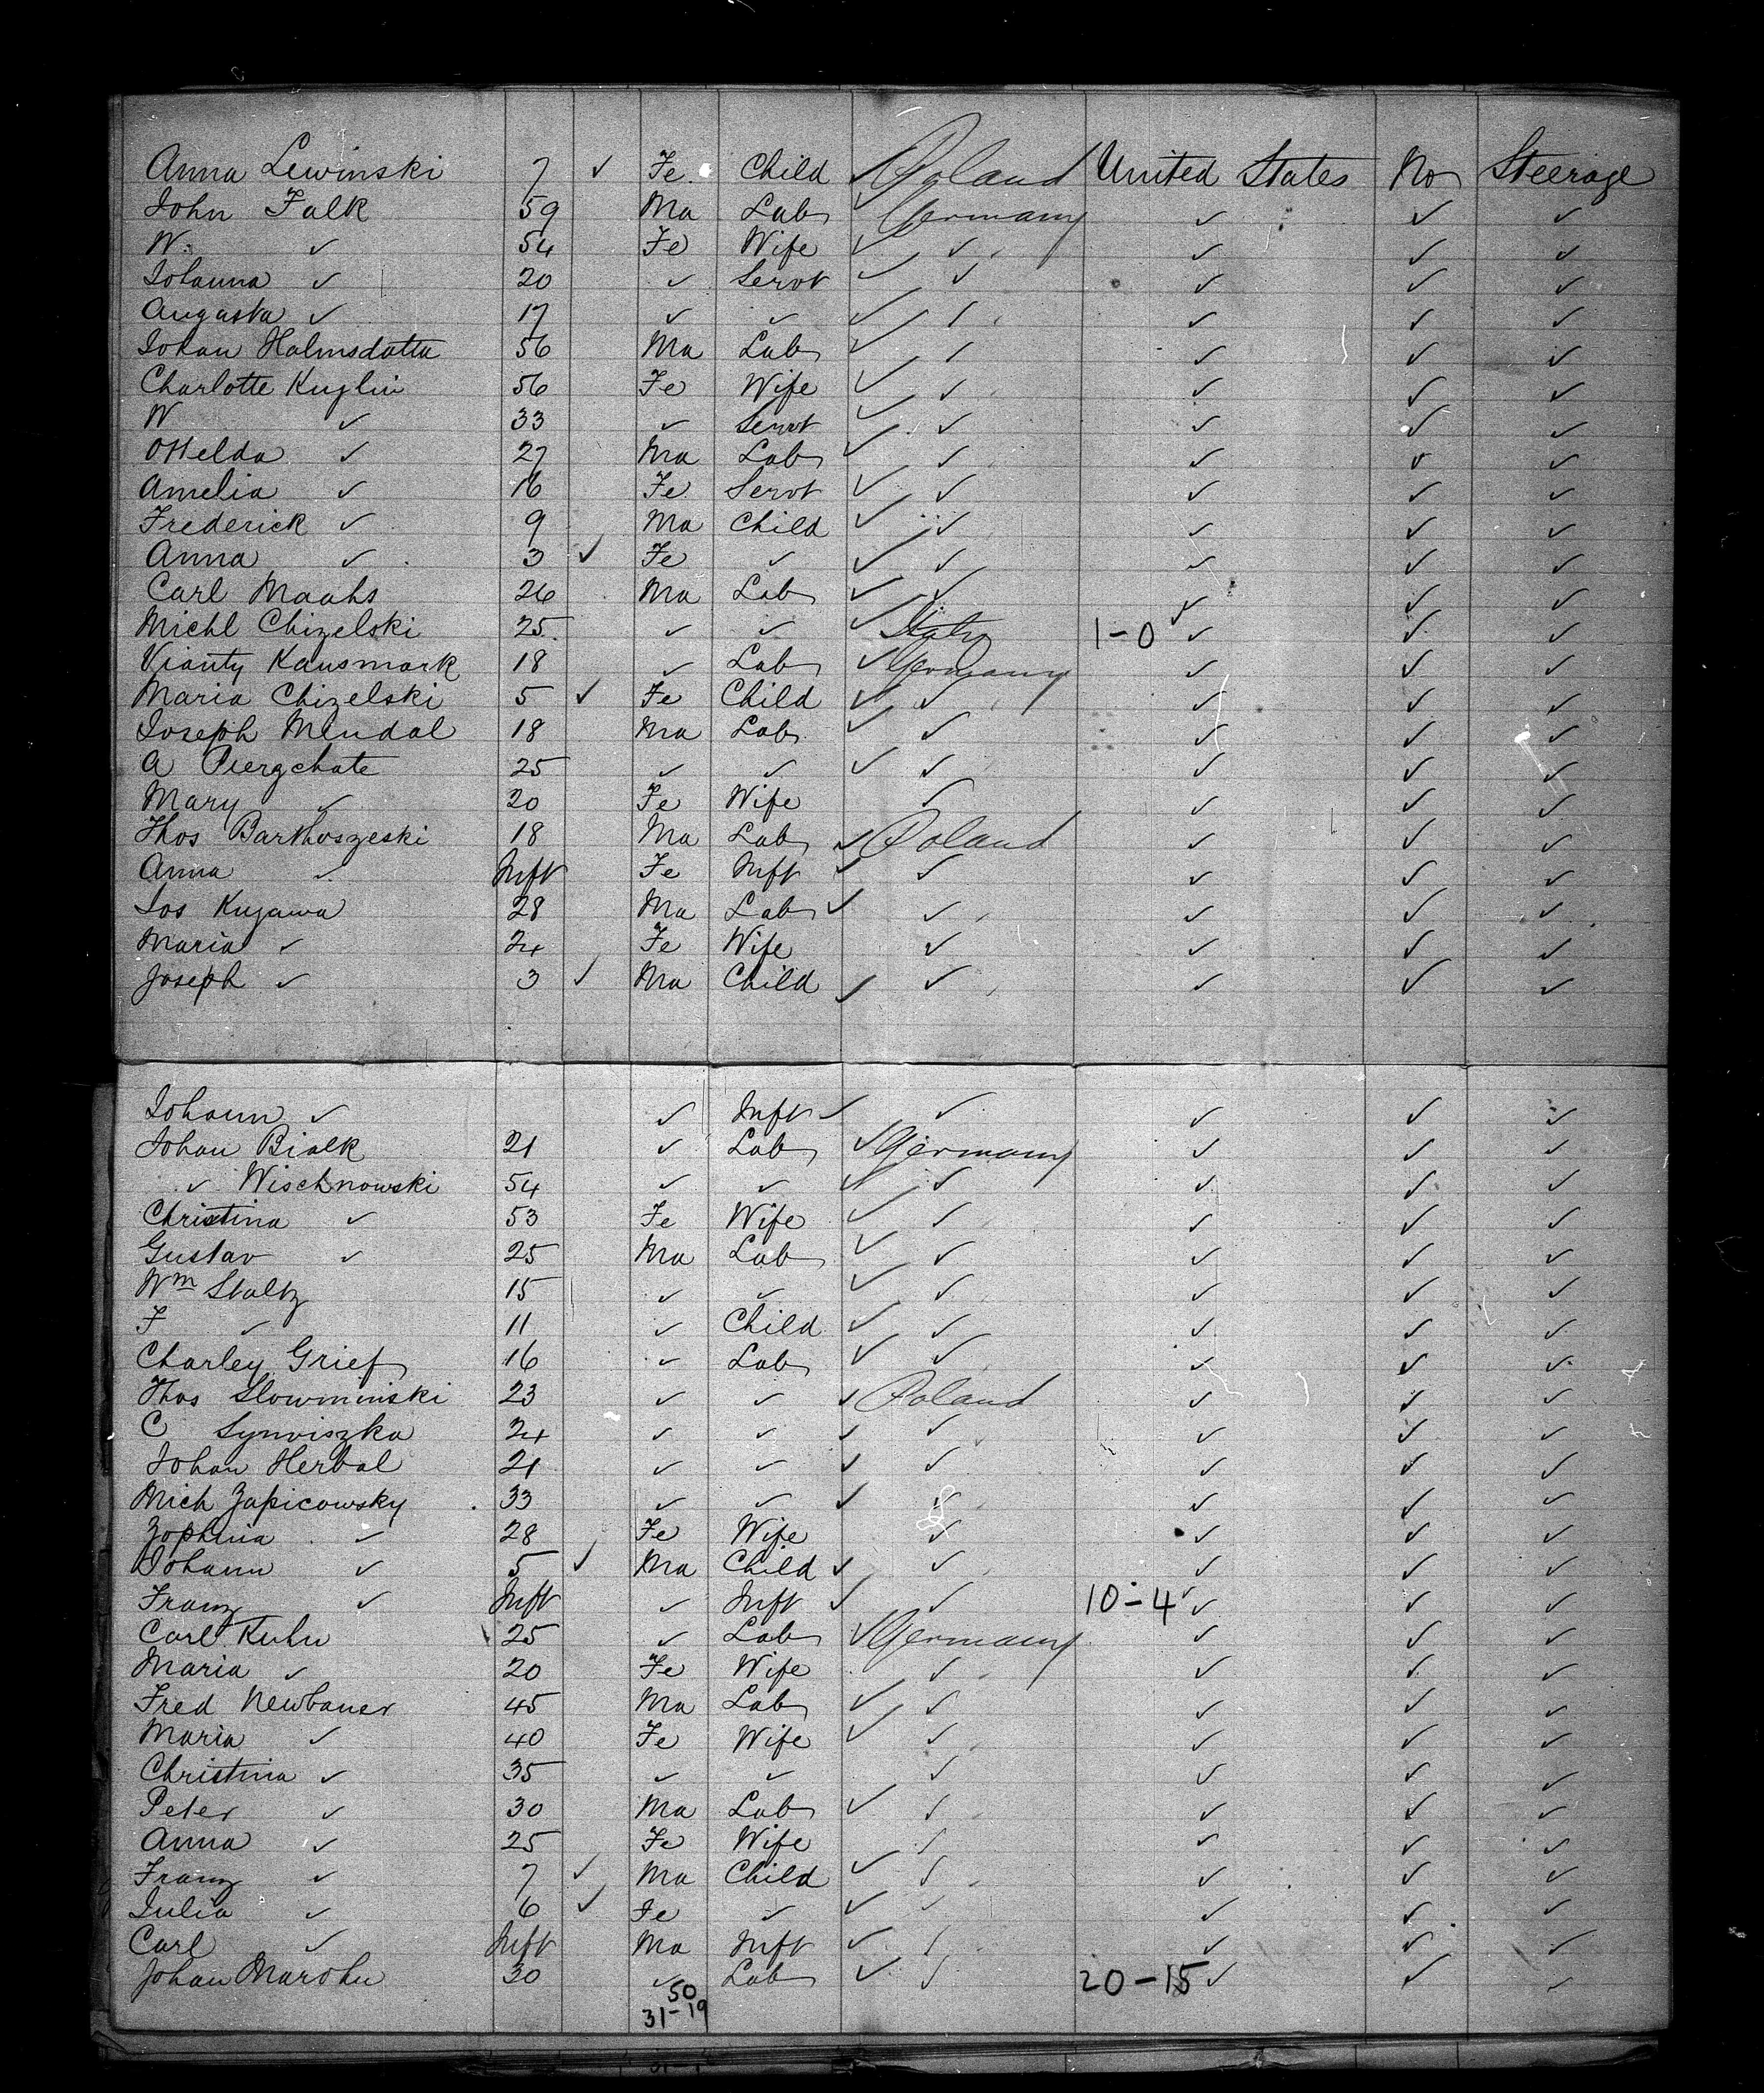 Anna Lewinski 7 ✓ Fe. Child ✓ Poland United States No Steerage
John Falk 59 Ma Lab ✓ Germany ✓ ✓ ✓
W. ✓ 54 Fe Wife ✓ ✓ ✓ ✓ ✓
Johanna ✓ 20 ✓ Servt ✓ ✓ ✓ ✓ ✓
Augasta ✓ 17 ✓ ✓ ✓ ✓ ✓ ✓ ✓
Johan Halmsdatta 56 Ma Lab ✓ ✓ ✓ ✓ ✓
Charlotte Kuglin 56 Fe Wife ✓ ✓ ✓ ✓ ✓
W ✓ 33 ✓ Servt ✓ ✓ ✓ ✓ ✓
Ottelda ✓ 27 Ma Lab ✓ ✓ ✓ ✓ ✓
Amelia ✓ 16 Fe Servt ✓ ✓ ✓ ✓ ✓
Frederick ✓ 9 Ma Child ✓ ✓ ✓ ✓ ✓
Anna ✓ 3 ✓ Fe ✓ ✓ ✓ ✓ ✓ ✓
Carl Maahs 26 Ma Lab ✓ ✓ ✓ ✓ ✓
Michl Chizelski 25 ✓ ✓ ✓ Italy 1-0 ✓ ✓ ✓
Vianty Kausmark 18 ✓ Lab ✓ Germany ✓ ✓ ✓
Maria Chizelski 5 ✓ Fe Child ✓ ✓ ✓ ✓ ✓
Joseph Mendal 18 Ma Lab ✓ ✓ ✓ ✓ ✓
A Piergchate 25 ✓ ✓ ✓ ✓ ✓ ✓ ✓
Mary ✓ 20 Fe Wife ✓ ✓ ✓ ✓
Thos Barthoszeski 18 Ma Lab ✓ Poland ✓ ✓ ✓
Anna ✓ Inft Fe Inft ✓ ✓ ✓ ✓ ✓
Jos Kujawa 28 Ma Lab ✓ ✓ ✓ ✓ ✓
Maria ✓ 24 Fe Wife ✓ ✓ ✓ ✓
Joseph ✓ 3 ✓ Ma Child ✓ ✓ ✓ ✓ ✓
Johann ✓ ✓ Inft ✓ ✓ ✓ ✓ ✓
Johan Bialk 21 ✓ Lab ✓ Germany ✓ ✓ ✓
✓ Wischnowski 54 ✓ ✓ ✓ ✓ ✓ ✓ ✓
Christina ✓ 53 Fe Wife ✓ ✓ ✓ ✓ ✓
Gustav ✓ 25 Ma Lab ✓ ✓ ✓ ✓ ✓
Wm Staltz 15 ✓ ✓ ✓ ✓ ✓ ✓ ✓
F ✓ 11 ✓ Child ✓ ✓ ✓ ✓ ✓
Charley Grief 16 ✓ Lab ✓ ✓ ✓ ✓ ✓
Thos Slowminski 23 ✓ ✓ ✓ Poland ✓ ✓ ✓
C Synviszka 24 ✓ ✓ ✓ ✓ ✓ ✓ ✓
Johan Herbal 21 ✓ ✓ ✓ ✓ ✓ ✓ ✓
Mich Zapicowsky 33 ✓ ✓ ✓ ✓ ✓ ✓ ✓
Zophnia ✓ 28 Fe Wife ✓ ✓ ✓ ✓
Johann ✓ 5 ✓ Ma Child ✓ ✓ ✓ ✓ ✓
Franz ✓ Inft ✓ Inft ✓ ✓ 10-4 ✓ ✓ ✓
Carl Kuhn 25 ✓ Lab ✓ Germany ✓ ✓ ✓
Maria ✓ 20 Fe Wife ✓ ✓ ✓ ✓
Fred Newbauer 45 Ma Lab ✓ ✓ ✓ ✓ ✓
Maria ✓ 40 Fe Wife ✓ ✓ ✓ ✓ ✓
Christina ✓ 35 ✓ ✓ ✓ ✓ ✓ ✓
Peter ✓ 30 Ma Lab ✓ ✓ ✓ ✓ ✓
Anna ✓ 25 Fe Wife ✓ ✓ ✓ ✓
Franz ✓ 7 ✓ Ma Child ✓ ✓ ✓ ✓ ✓
Julia ✓ 6 ✓ Fe ✓ ✓ ✓ ✓ ✓ ✓
Carl ✓ Inft Ma Inft ✓ ✓ ✓ ✓ ✓
Johan Marohn 30 ✓ Lab ✓ ✓ 20-15 ✓ ✓ ✓
50
31-19